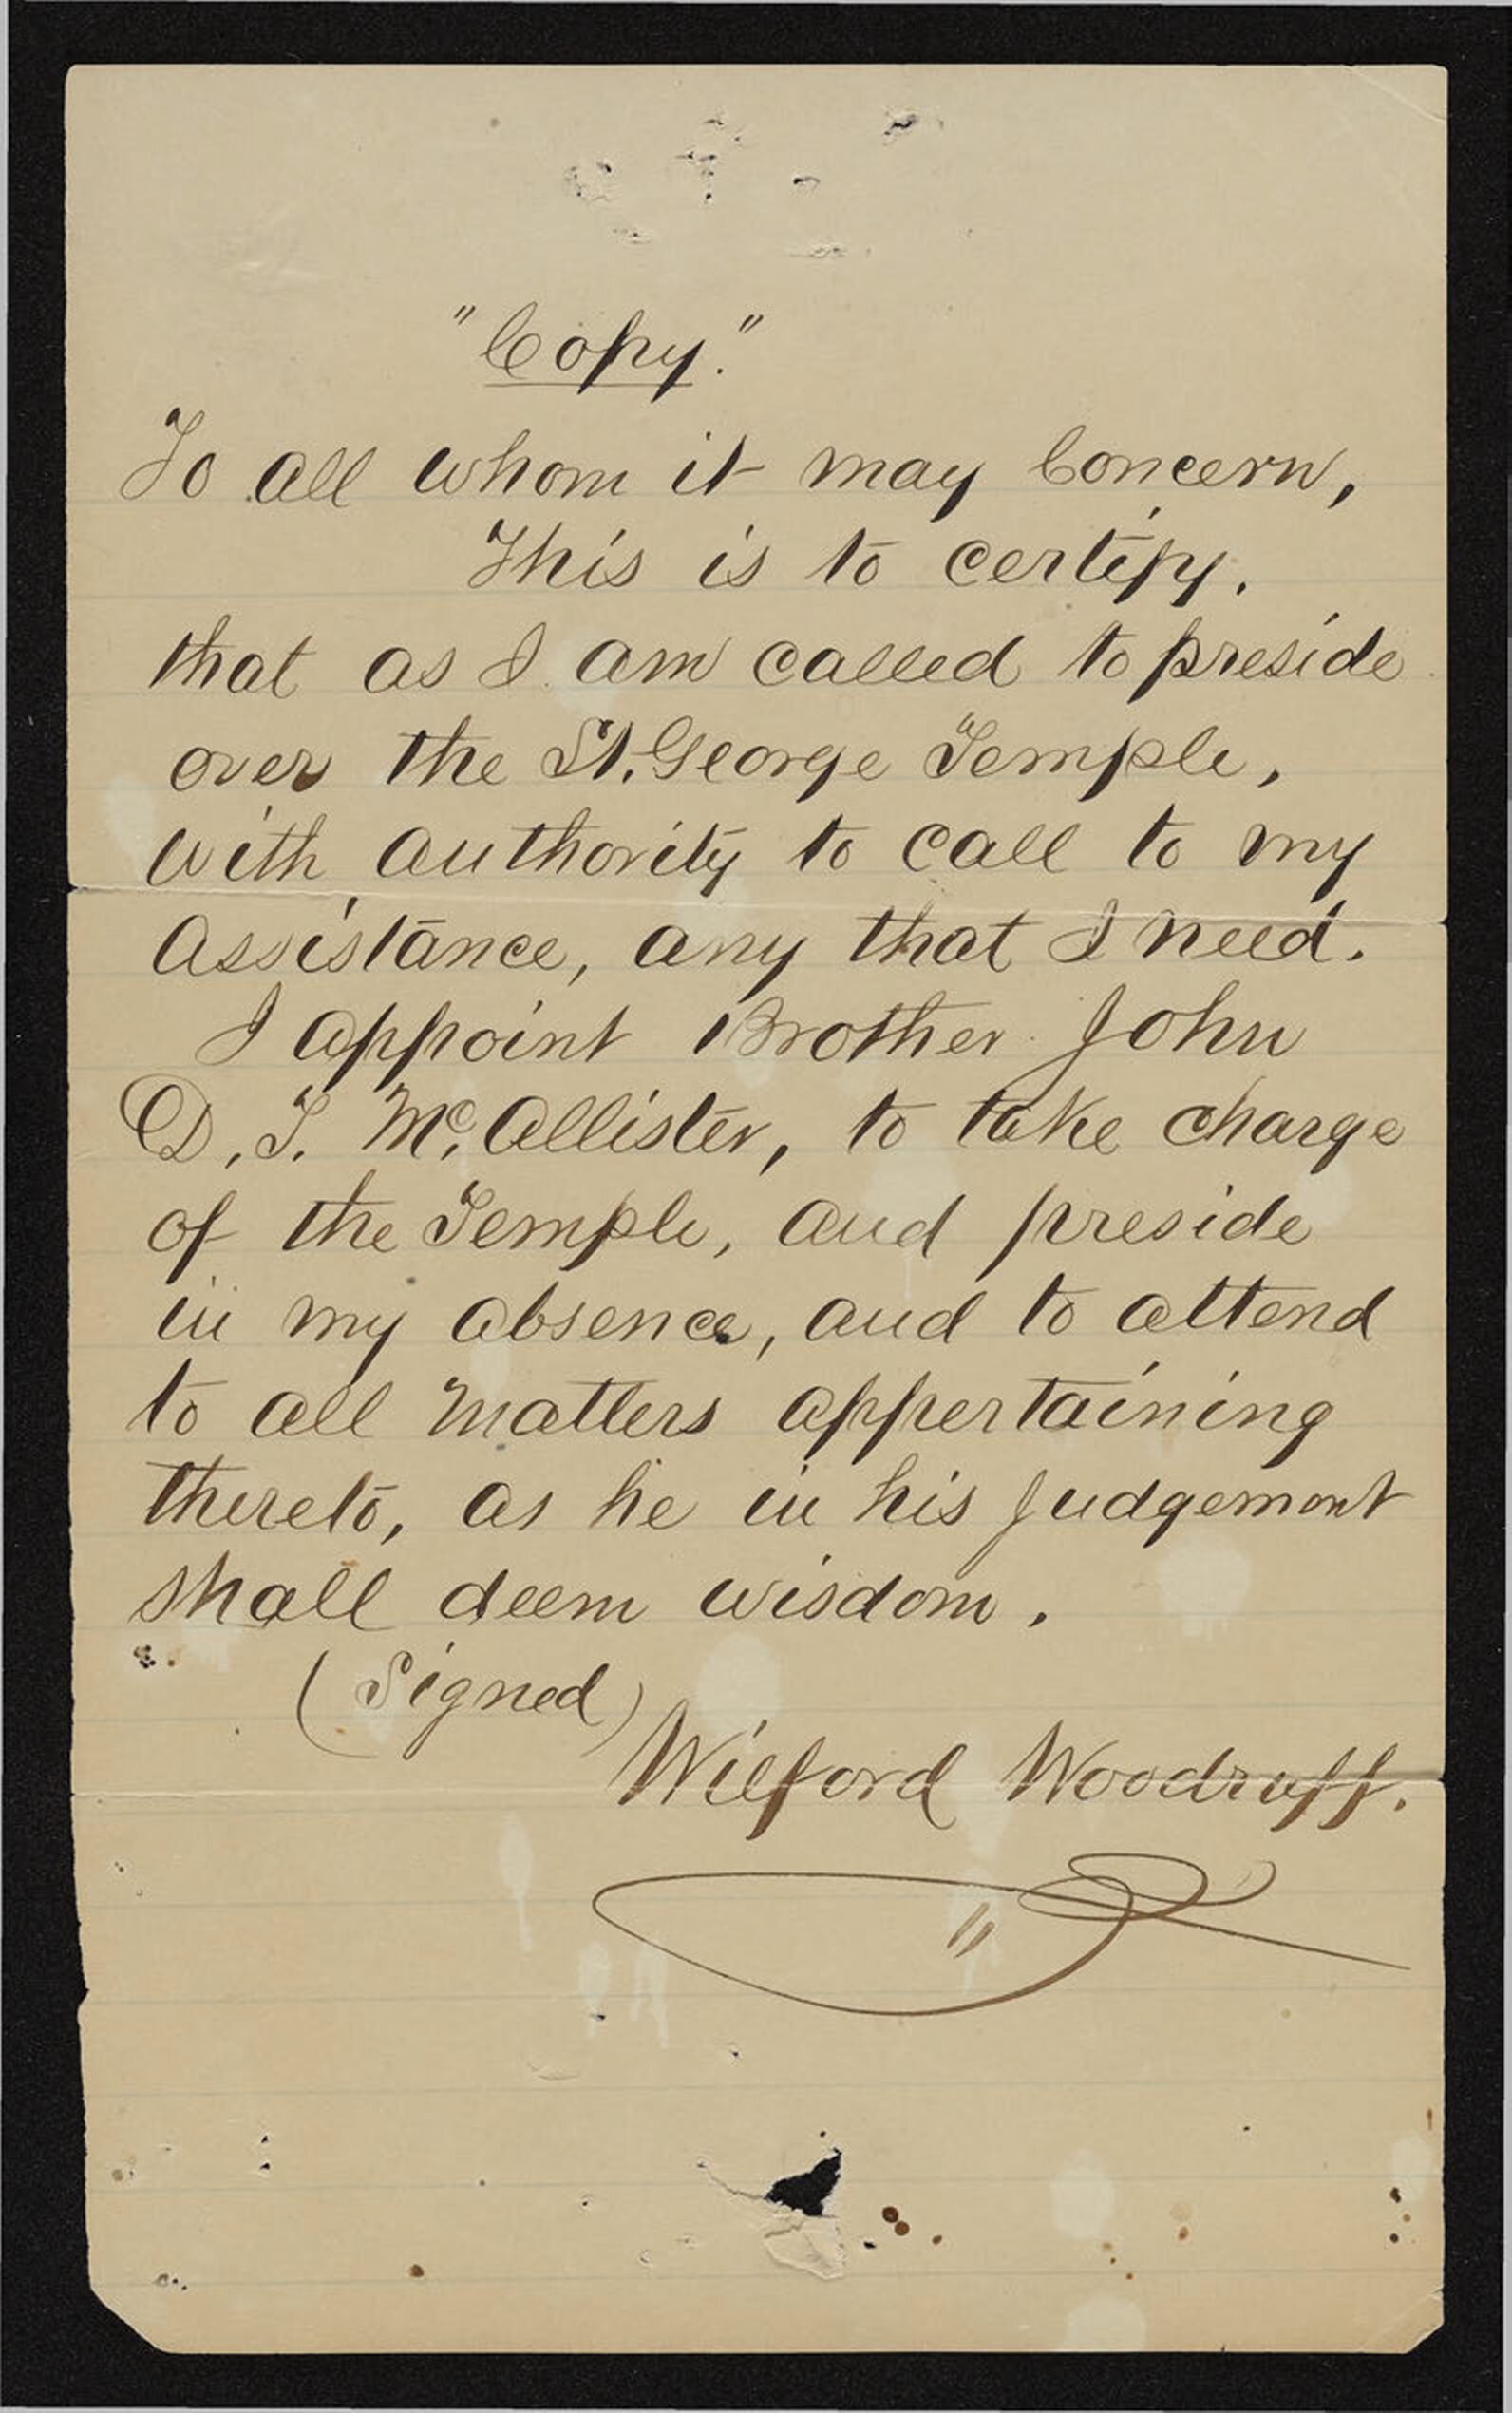 "Copy."
To all whom it may Concern,
This is to certify,
that as I am called to preside
over the St. George Temple,
with authority to call to my
Assistance, any that I need.
I appoint Brother John
D. T. Mc.Allister, to take charge
of the Temple, and preside
in my absence, and to attend
to all matters appertaining
thereto, as he in his judgement
shall deem wisdom.
(Signed)
Wilford Woodruff.
"